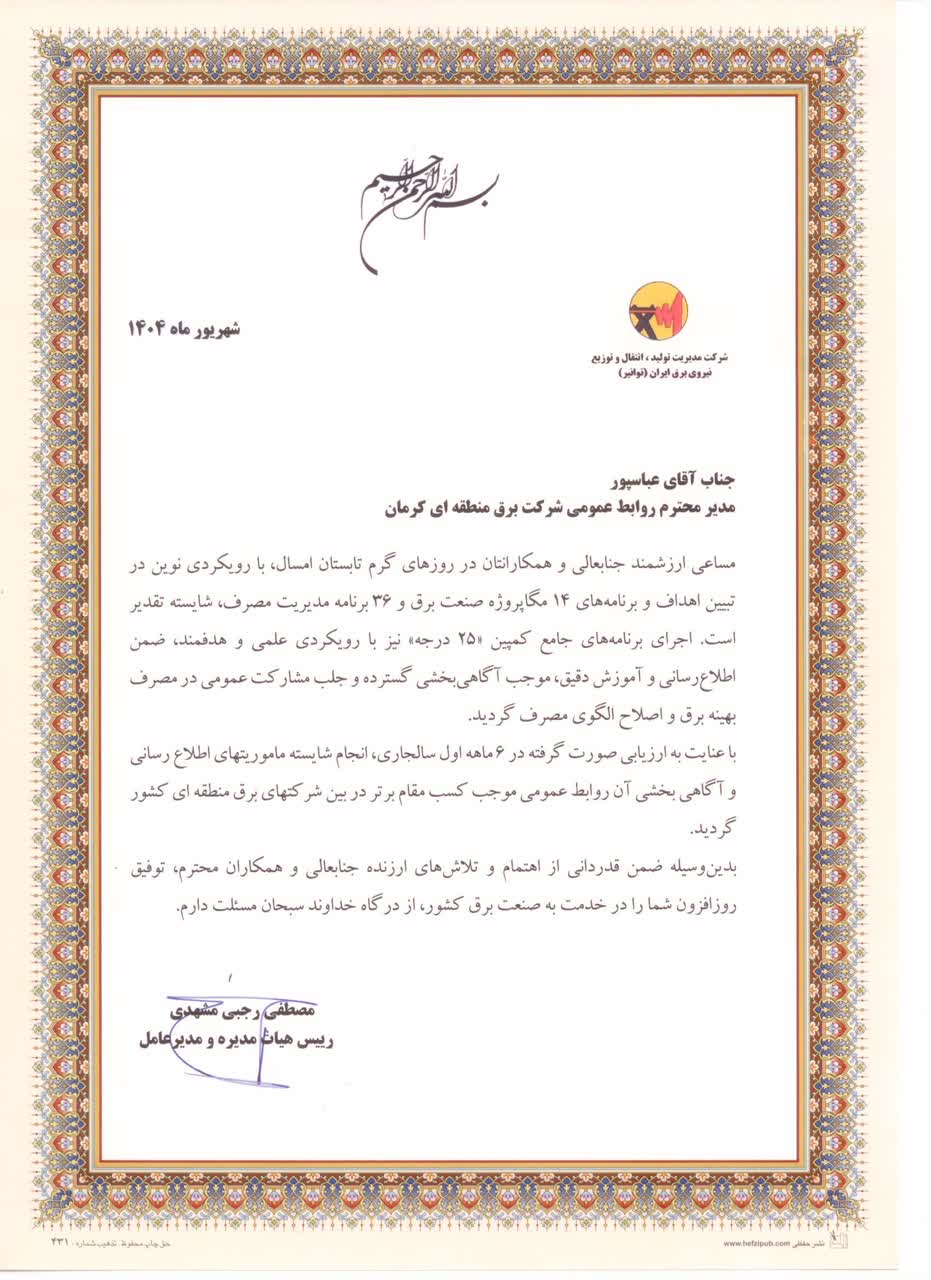 بسم الله الرحمن الرحیم
شهریور ماه ۱۴۰۴
شرکت مدیریت تولید، انتقال و توزیع
نیروی برق ایران (توانیر)
جناب آقای عباسپور
مدیر محترم روابط عمومی شرکت برق منطقه ای کرمان
مساعی ارزشمند جنابعالی و همکارانتان در روزهای گرم تابستان امسال، با رویکردی نوین در
تبیین اهداف و برنامه‌های ۱۴ مگاپروژه صنعت برق و ۳۶ برنامه مدیریت مصرف، شایسته تقدیر
است. اجرای برنامه‌های جامع کمپین «۲۵ درجه» نیز با رویکردی علمی و هدفمند، ضمن
اطلاع‌رسانی و آموزش دقیق، موجب آگاهی‌بخشی گسترده و جلب مشارکت عمومی در مصرف
بهینه برق و اصلاح الگوی مصرف گردید.
با عنایت به ارزیابی صورت گرفته در ۶ ماهه اول سالجاری، انجام شایسته ماموریتهای اطلاع رسانی
و آگاهی بخشی آن روابط عمومی موجب کسب مقام برتر در بین شرکتهای برق منطقه ای کشور
گردید.
بدین‌وسیله ضمن قدردانی از اهتمام و تلاش‌های ارزنده جنابعالی و همکاران محترم، توفیق
روزافزون شما را در خدمت به صنعت برق کشور، از درگاه خداوند سبحان مسئلت دارم.
مصطفی رجبی مشهدی
رییس هیات مدیره و مدیرعامل
نشر حفظی www.hefzipub.com
حق چاپ محفوظ. تذهیب شماره ۴۳۱۰